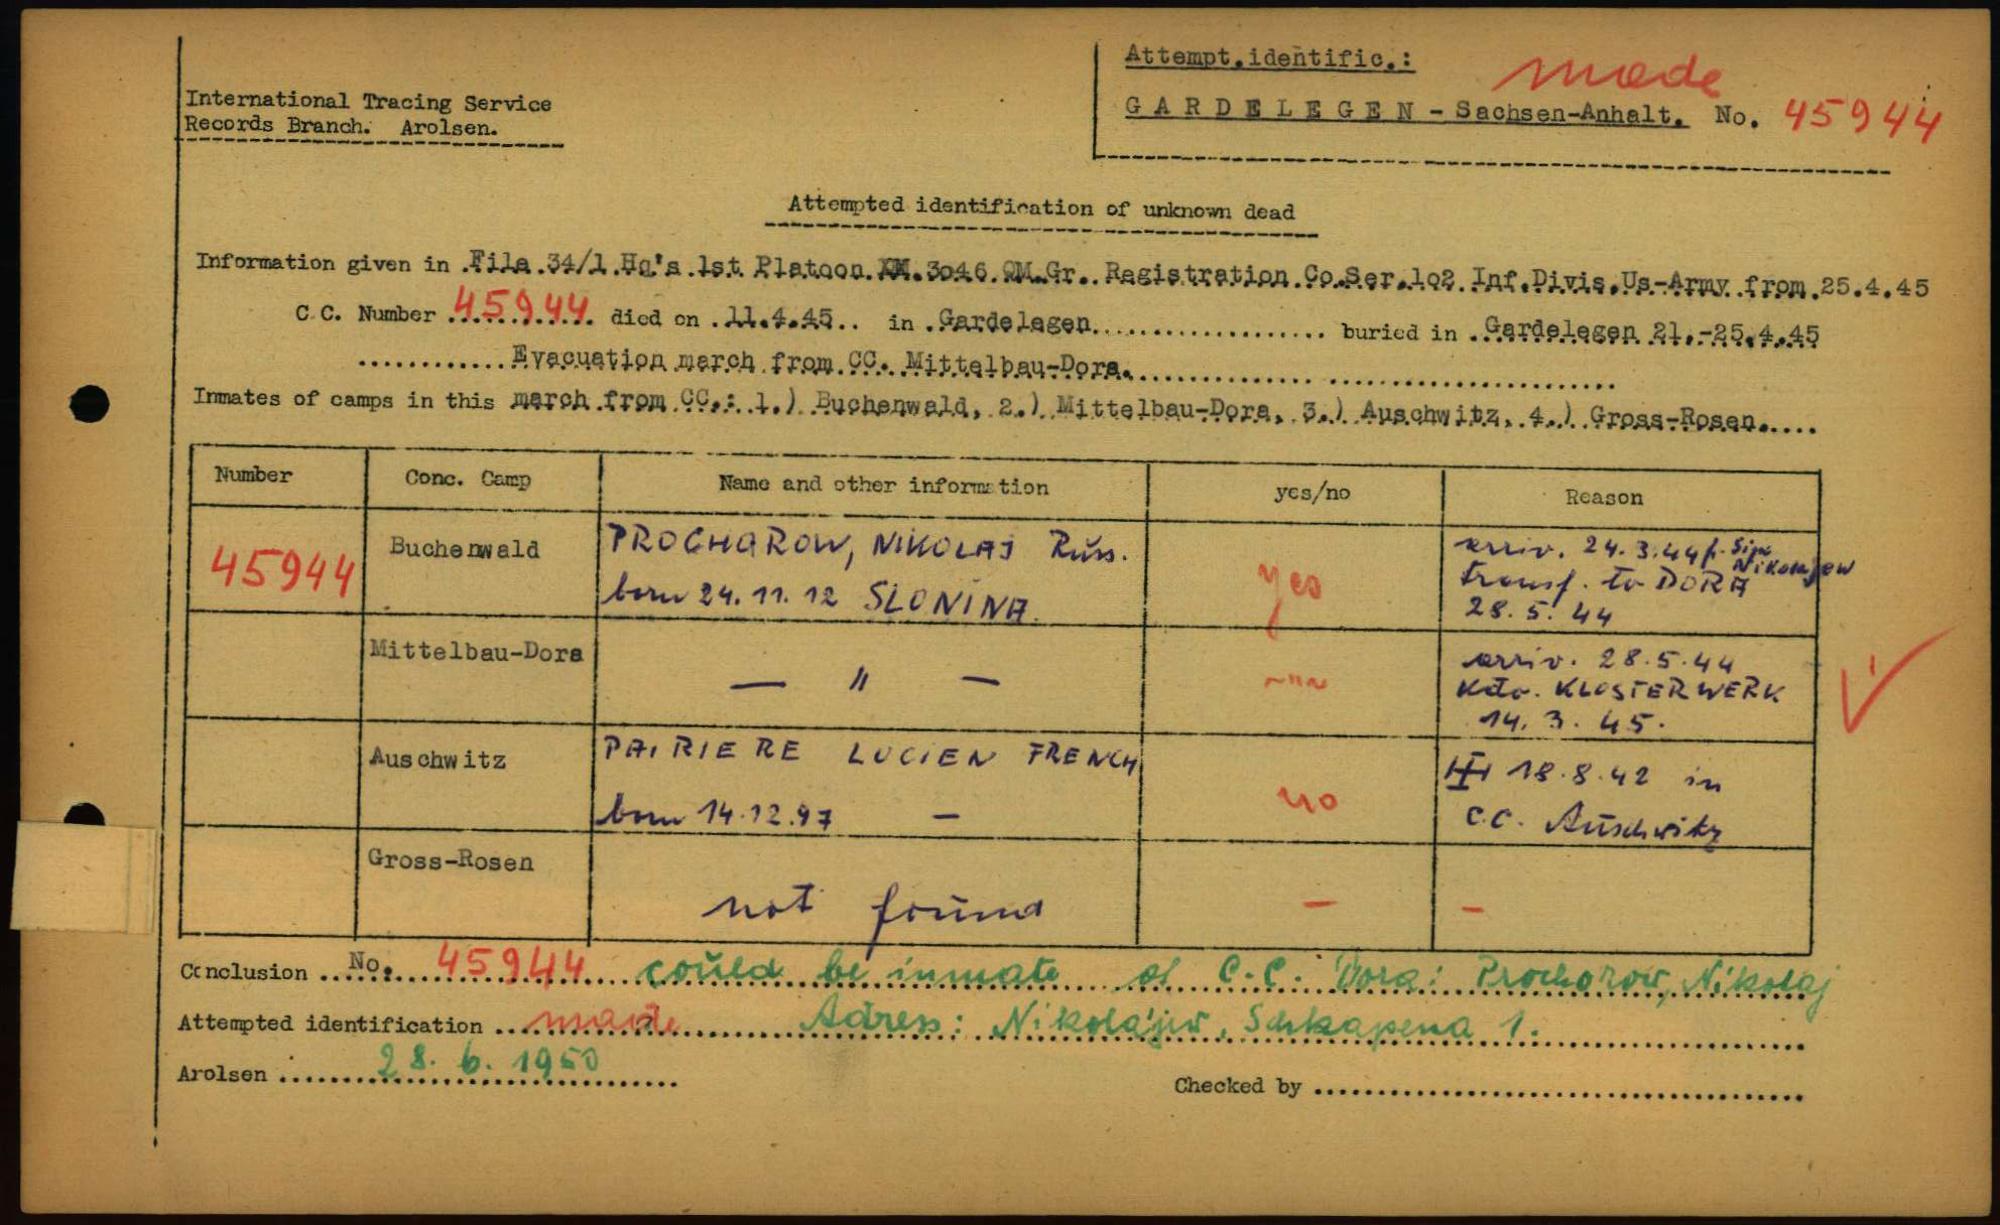 Attempt.identific.: made
International Tracing Service
Records Branch. Arolsen.
GARDELEGEN - Sachsen-Anhalt. No. 45944
Attempted identification of unknown dead
Information given in File 34/1 Hq's 1st Platoon 3046 QM.Gr. Registration Co.Ser.102 Inf.Divis.Us-Army from 25.4.45
C.C. Number 45944 died on 11.4.45 in Gardelegen buried in Gardelegen 21.-25.4.45
Evacuation march from CC. Mittelbau-Dora.
Inmates of camps in this march from CC.: 1.) Buchenwald, 2.) Mittelbau-Dora, 3.) Auschwitz, 4.) Gross-Rosen.
Number Conc. Camp Name and other information yes/no Reason
45944 Buchenwald PROCHAROW, NIKOLAJ Russ. yes arriv. 24.3.44 f. Sipo Nikolajew
born 24.11.12 SLONINA. transf. to DORA
28.5.44
Mittelbau-Dora — " — -"- arriv. 28.5.44
Kdo. KLOSTERWERK
14.3.45.
Auschwitz PAIRIERE LUCIEN FRENCH no 18.8.42 in
born 14.12.97 — C.C. Auschwitz
Gross-Rosen not found — —
Conclusion No. 45944 could be inmate of C.C. Dora: Prochorow, Nikolaj
Attempted identification made Adress: Nikolajew, Schkapena 1.
Arolsen 28.6.1950
Checked by